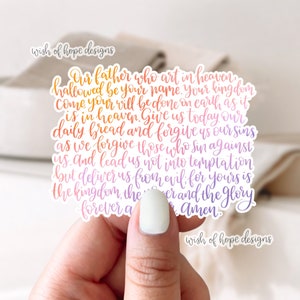 wish of hope designs
Our father who art in heaven,
hallowed be your name. Your kingdom
come your will be done in earth, as it
is in heaven. Give us today our
daily bread and forgive us our sins
as we forgive those who sin against
us. And lead us not into temptation
but deliver us from evil: for yours is
the kingdom, the and the glory,
forever Amen.
wish of hope designs